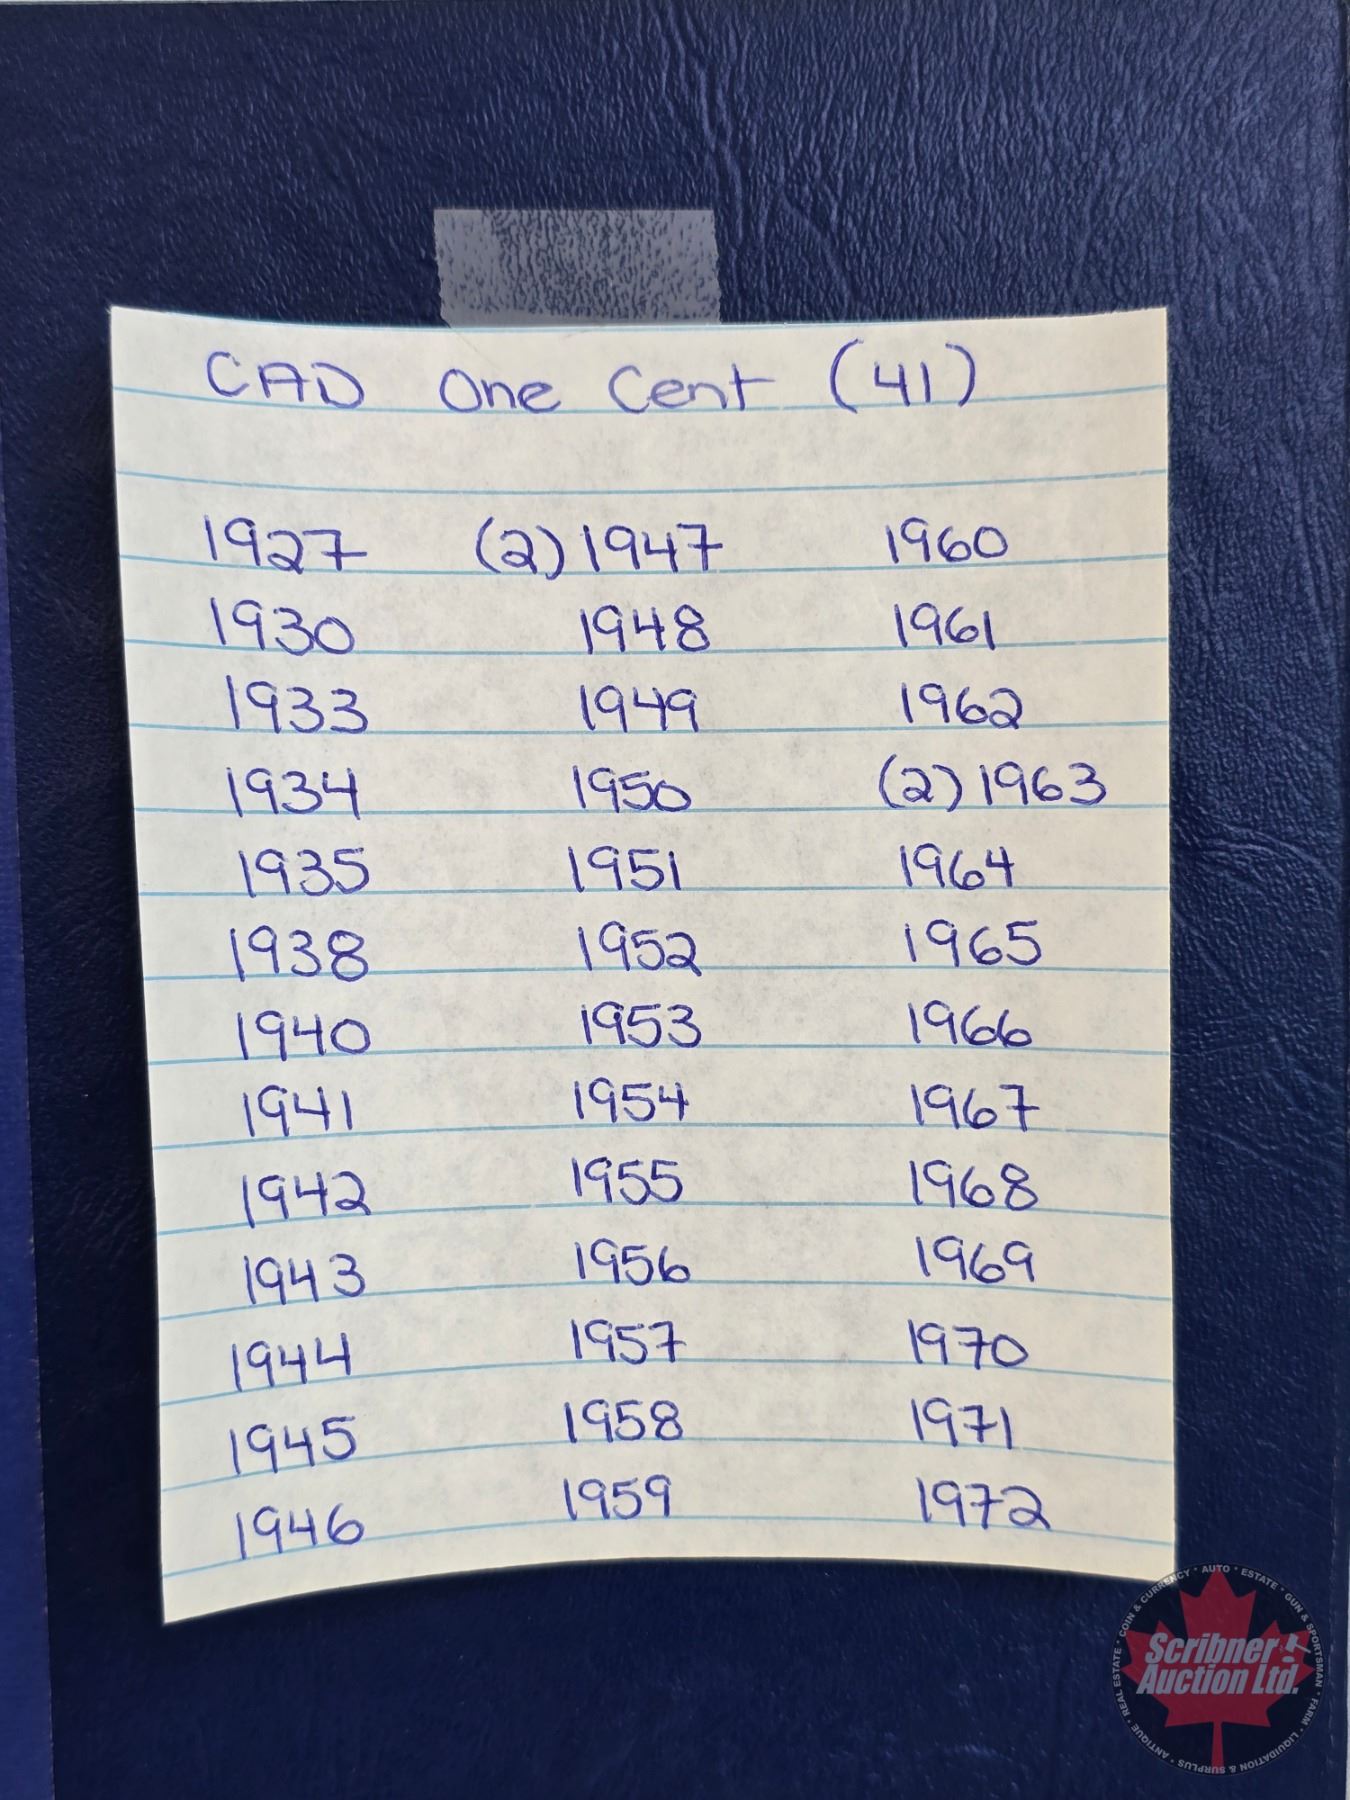 CAD One Cent (41)
1927 (2) 1947 1960
1930 1948 1961
1933 1949 1962
1934 1950 (2) 1963
1935 1951 1964
1938 1952 1965
1940 1953 1966
1941 1954 1967
1942 1955 1968
1943 1956 1969
1944 1957 1970
1945 1958 1971
1946 1959 1972
ANTIQUE · REAL ESTATE · COIN & CURRENCY · AUTO · ESTATE · GUN & SPORTSMAN · FARM · LIQUIDATION & SURPLUS ·
Scribner
Auction Ltd.